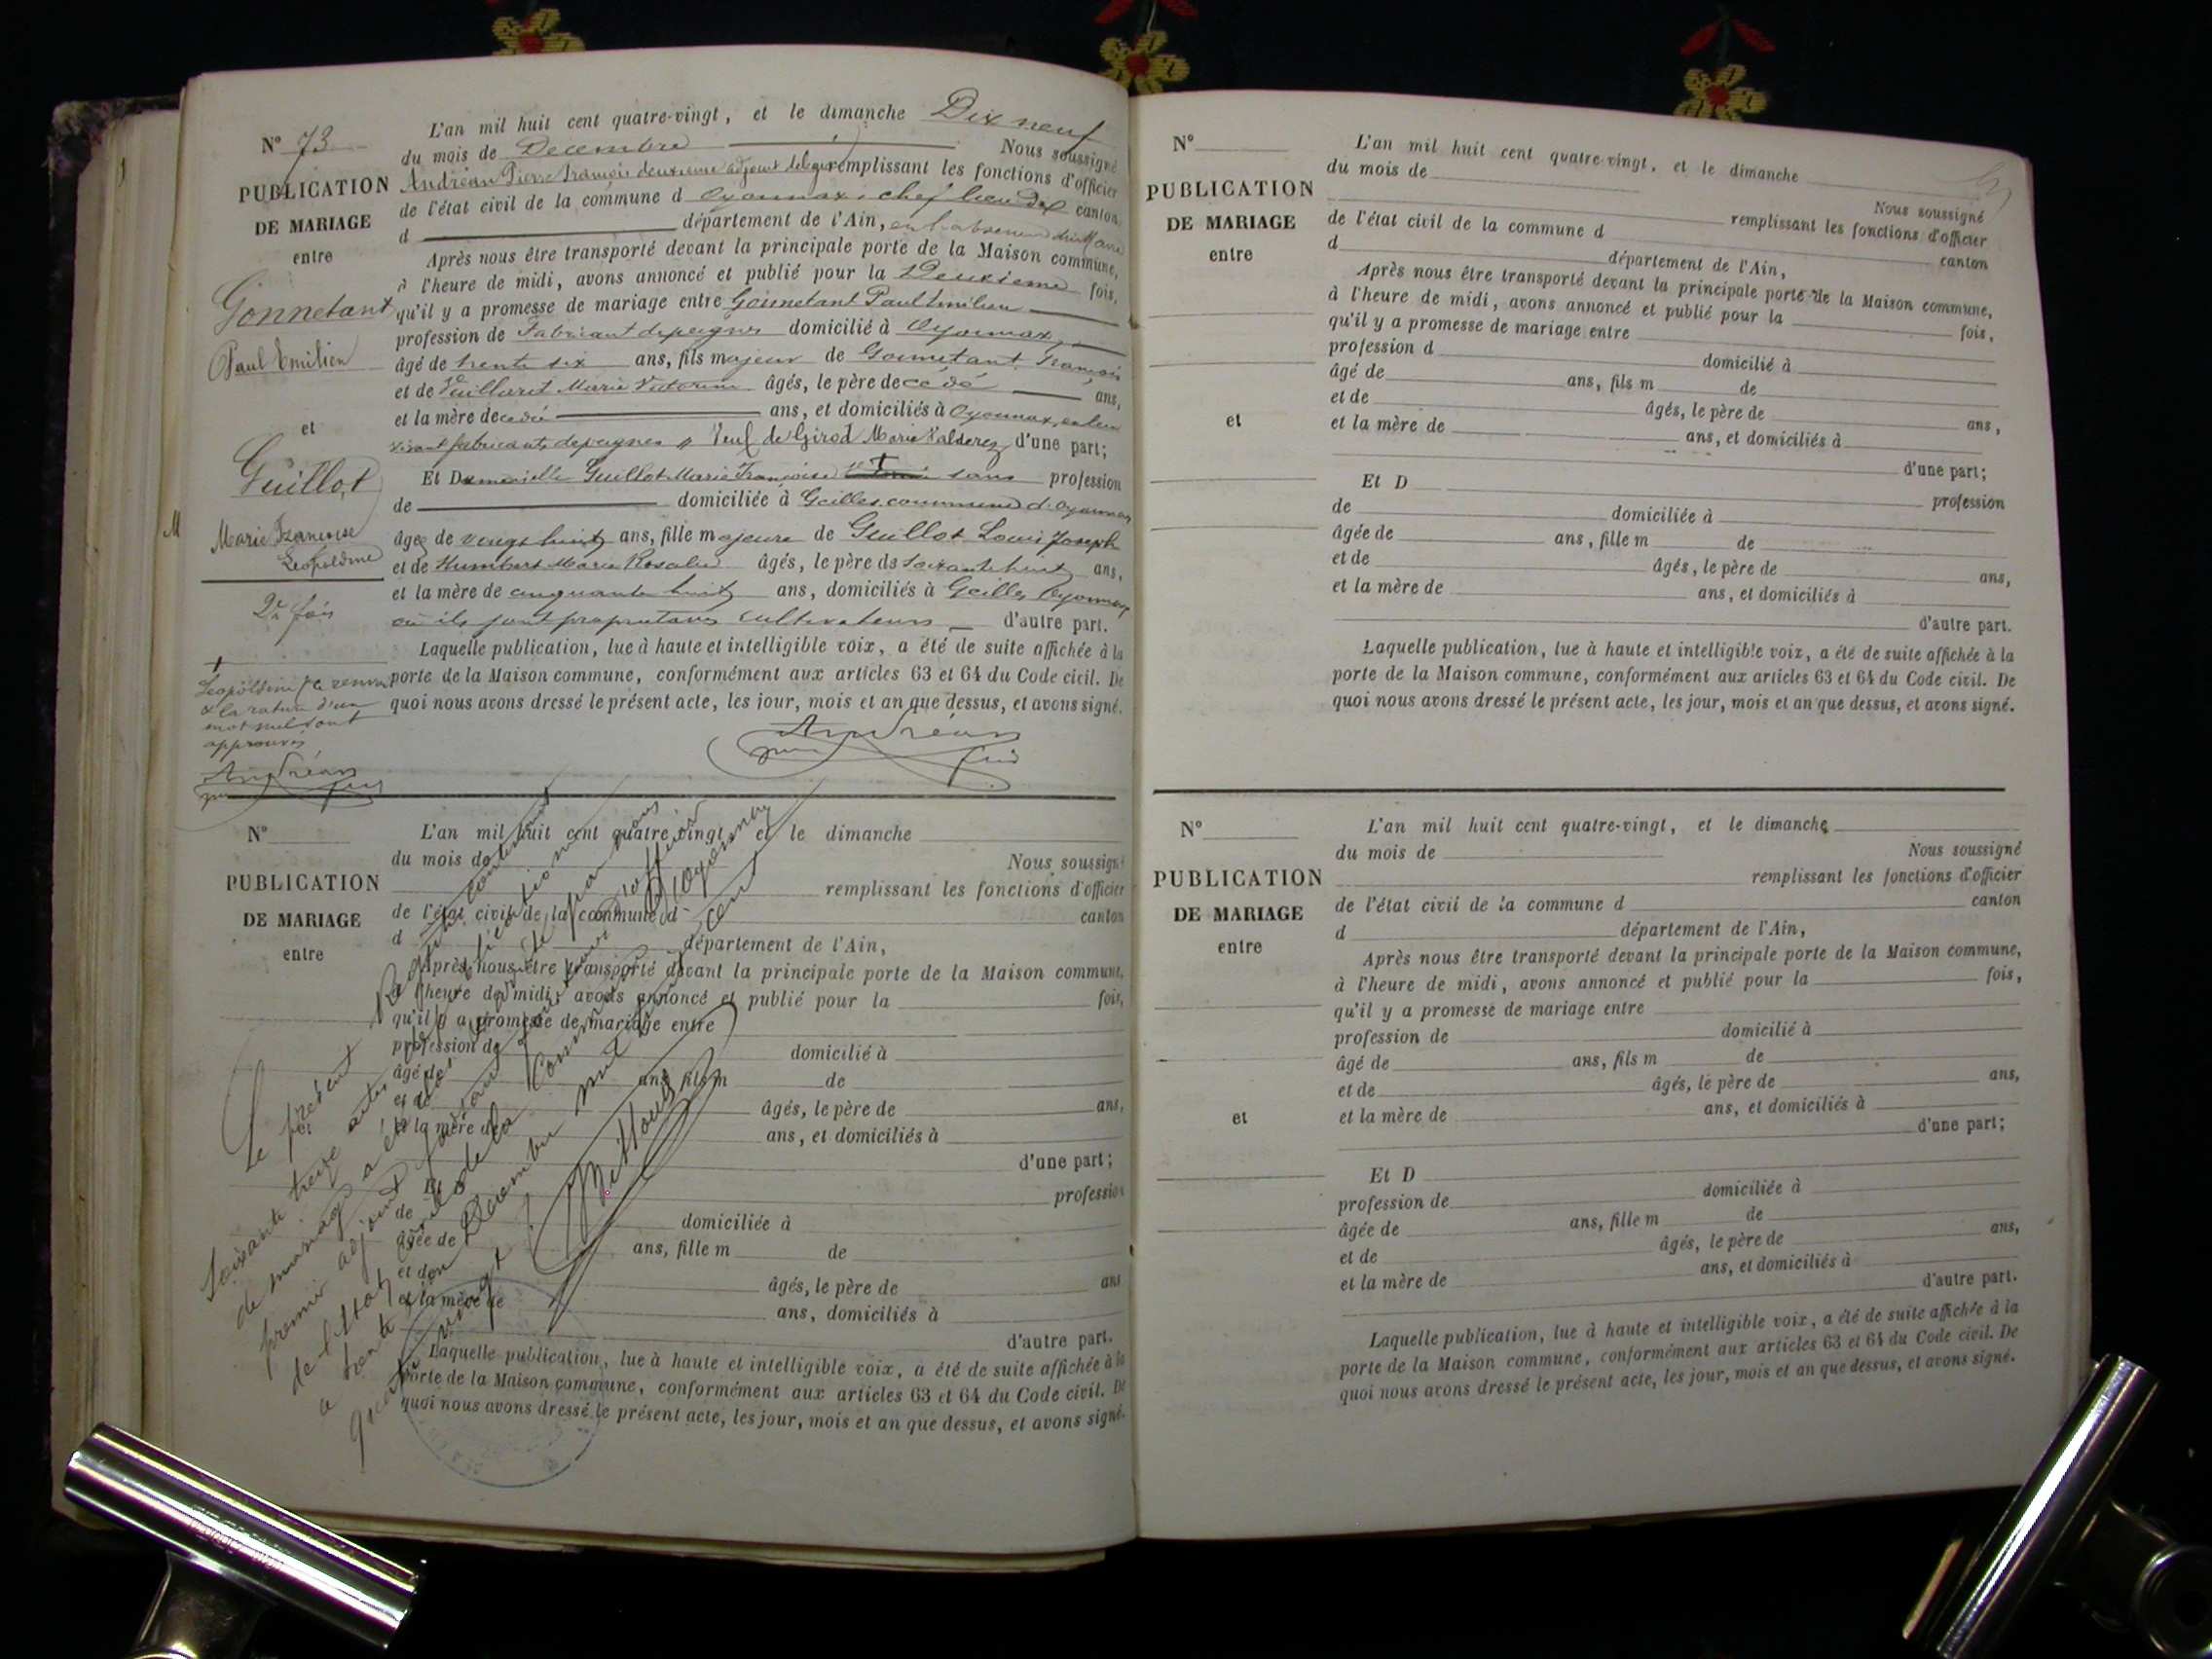 N° 73
PUBLICATION
DE MARIAGE
entre
Gonnetant
Paul Emilien
et
Guillot
Marie Françoise
Léopoldine
2e fois
Léopoldine ce renvoi
& la rature d'un
mot nul sont
approuvés
Andréan
L'an mil huit cent quatre-vingt, et le dimanche Dix neuf
du mois de Decembre Nous soussigné
Andréan Pierre François deuxieme adjoint délégué remplissant les fonctions d'officier
de l'état civil de la commune d Oyonnax, chef lieu de canton
d département de l'Ain, en l'absence du Maire
Après nous être transporté devant la principale porte de la Maison commune,
à l'heure de midi, avons annoncé et publié pour la Deuxieme fois,
qu'il y a promesse de mariage entre Gonnetant Paul Emilien
profession de Fabricant de peignes domicilié à Oyonnax,
âgé de trente six ans, fils majeur de Gonnetant François
et de Vuillaret Marie Victorine âgés, le père decédé ans,
et la mère decedée ans, et domiciliés à Oyonnax, en leur
vivant fabricants de peignes, Veuf de Girod Marie d'une part;
Et Demoiselle Guillot Marie Françoise sans profession
de domiciliée à Geilles commune d'Oyonnax
âgée de vingt huit ans, fille majeure de Guillot Louis Joseph
et de Humbert Marie Rosalie âgés, le père de soixante huit ans,
et la mère de cinquante huit ans, domiciliés à Geilles Oyonnax
où ils sont propriétaires cultivateurs d'autre part.
Laquelle publication, lue à haute et intelligible voix, a été de suite affichée à la
porte de la Maison commune, conformément aux articles 63 et 64 du Code civil. De
quoi nous avons dressé le présent acte, les jour, mois et an que dessus, et avons signé.
Andréan
N°
PUBLICATION
DE MARIAGE
entre
L'an mil huit cent quatre-vingt, et le dimanche
du mois de Nous soussigné
remplissant les fonctions d'officier
de l'état civil de la commune d canton
d département de l'Ain,
Après nous être transporté devant la principale porte de la Maison commune,
à l'heure de midi, avons annoncé et publié pour la fois,
qu'il y a promesse de mariage entre
profession de domicilié à
âgé de ans, fils m de
et de âgés, le père de ans,
et la mère de ans, et domiciliés à
d'une part;
profession
de domiciliée à
âgée de ans, fille m de
et de âgés, le père de ans
et la mère de ans, domiciliés à
d'autre part.
Laquelle publication, lue à haute et intelligible voix, a été de suite affichée à la
porte de la Maison commune, conformément aux articles 63 et 64 du Code civil. De
quoi nous avons dressé le présent acte, les jour, mois et an que dessus, et avons signé.
Le présent Registre contenant
soixante treize actes de publications
de mariage a été clos par nous
premier adjoint faisant fonctions d'officier
de l'Etat civil de la Commune d'Oyonnax
a trente un Decembre mil huit cent
quatre vingt
N°
PUBLICATION
DE MARIAGE
entre
et
L'an mil huit cent quatre-vingt, et le dimanche
du mois de
Nous soussigné
remplissant les fonctions d'officier
de l'état civil de la commune d
canton
d département de l'Ain,
Après nous être transporté devant la principale porte de la Maison commune,
à l'heure de midi, avons annoncé et publié pour la fois,
qu'il y a promesse de mariage entre
profession d domicilié à
âgé de ans, fils m de
et de âgés, le père de ans,
et la mère de ans, et domiciliés à
d'une part;
Et D profession
de domiciliée à
âgée de ans, fille m de
et de âgés, le père de ans,
et la mère de ans, et domiciliés à
d'autre part.
Laquelle publication, lue à haute et intelligible voix, a été de suite affichée à la
porte de la Maison commune, conformément aux articles 63 et 64 du Code civil. De
quoi nous avons dressé le présent acte, les jour, mois et an que dessus, et avons signé.
N°
PUBLICATION
DE MARIAGE
entre
et
L'an mil huit cent quatre-vingt, et le dimanche
du mois de Nous soussigné
remplissant les fonctions d'officier
de l'état civil de la commune d canton
d département de l'Ain,
Après nous être transporté devant la principale porte de la Maison commune,
à l'heure de midi, avons annoncé et publié pour la fois,
qu'il y a promesse de mariage entre
profession de domicilié à
âgé de ans, fils m de
et de âgés, le père de ans,
et la mère de ans, et domiciliés à
d'une part;
Et D
profession de domiciliée à
âgée de ans, fille m de
et de âgés, le père de ans,
et la mère de ans, et domiciliés à
d'autre part.
Laquelle publication, lue à haute et intelligible voix, a été de suite affichée à la
porte de la Maison commune, conformément aux articles 63 et 64 du Code civil. De
quoi nous avons dressé le présent acte, les jour, mois et an que dessus, et avons signé.